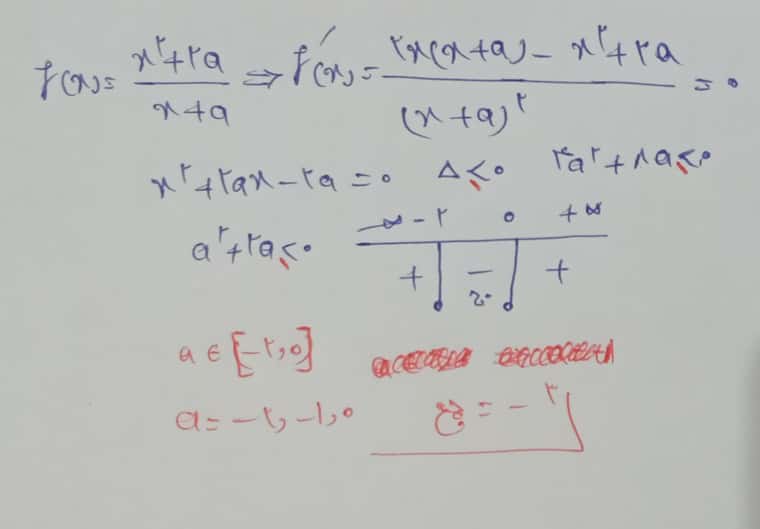 f(x) = (x^۲+۲a)/(x+a) ⇒ f′(x) = (۲x(x+a) − x^۲+۲a)/((x+a)^۲) = ۰
x^۲+۲ax−۲a = ۰ Δ ≤ ۰ ۴a^۲+۸a ≤ ۰
a^۲+۲a ≤ ۰ −∞ −۲ ۰ +∞
+ − +
a ∈ [−۲,۰]
a = −۲, −۱, ۰ جمع = −۳